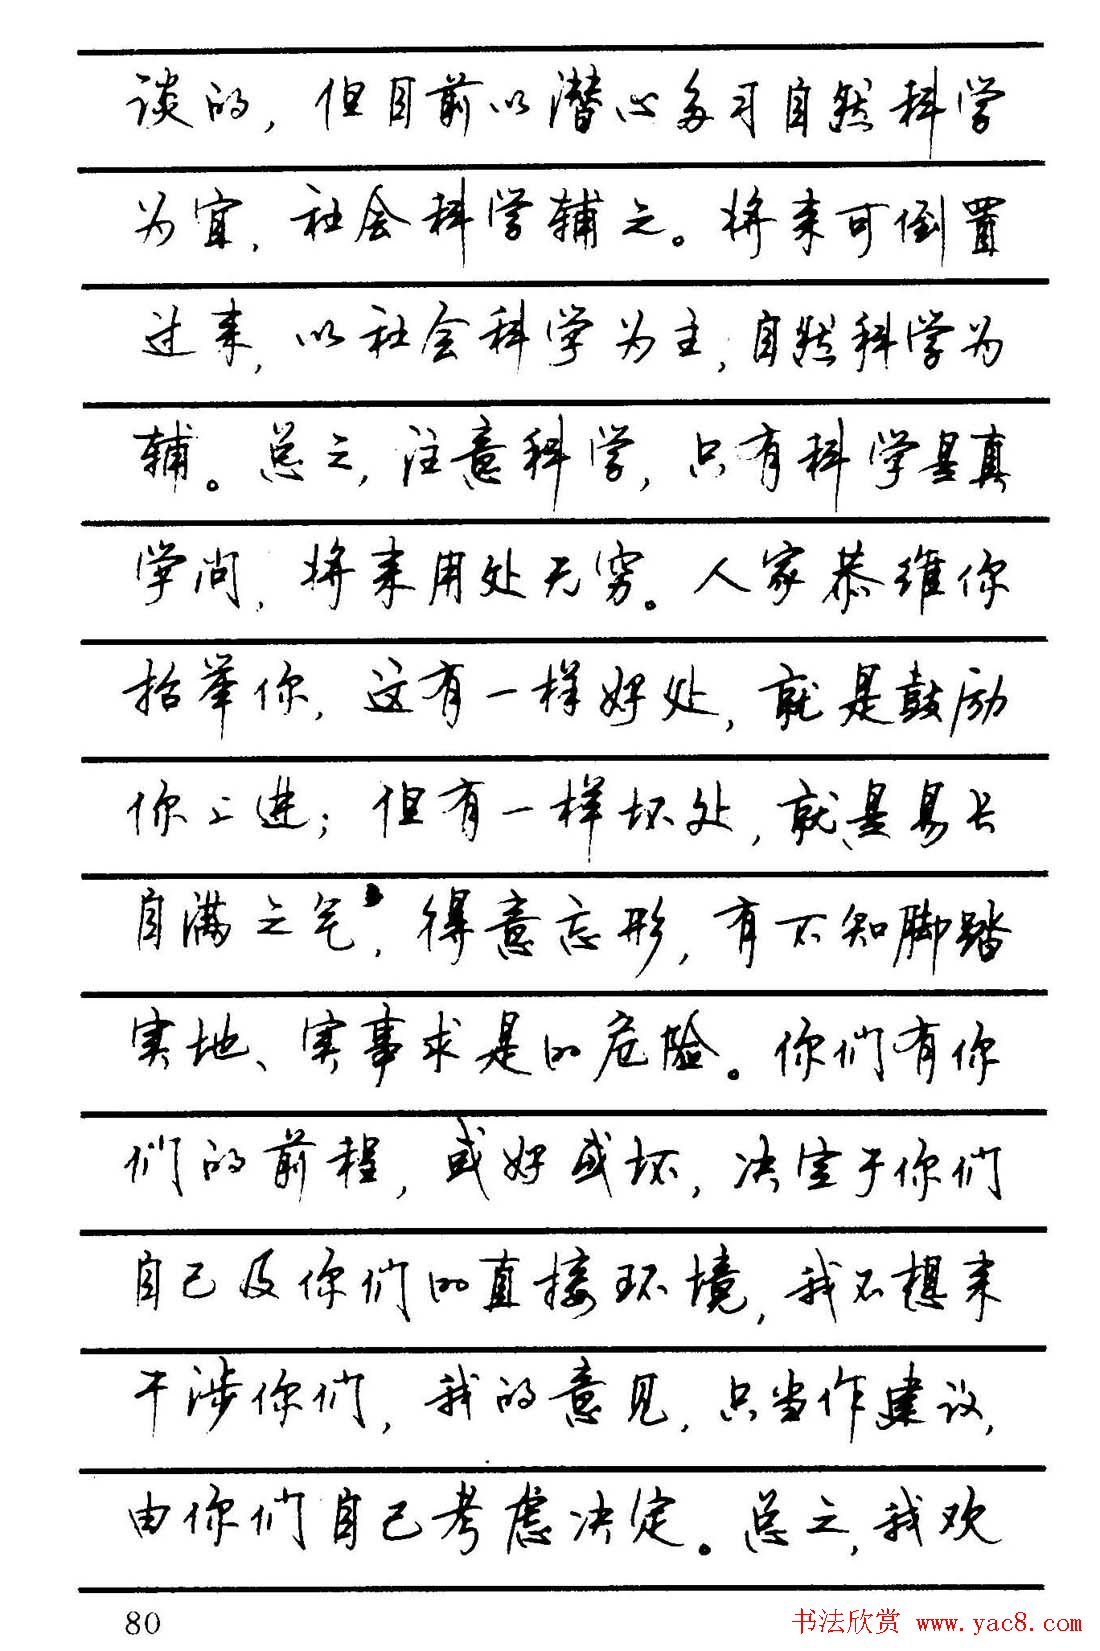 谈的，但目前以潜心多习自然科学
为宜，社会科学辅之。将来可倒置
过来，以社会科学为主，自然科学为
辅。总之，注意科学，只有科学是真
学问，将来用处无穷。人家恭维你
抬举你，这有一样好处，就是鼓励
你上进；但有一样坏处，就是易长
自满之气，得意忘形，有不知脚踏
实地、实事求是的危险。你们有你
们的前程，或好或坏，决定于你们
自己及你们的直接环境，我不想来
干涉你们，我的意见，只当作建议，
由你们自己考虑决定。总之，我欢
80
书法欣赏 www.yac8.com